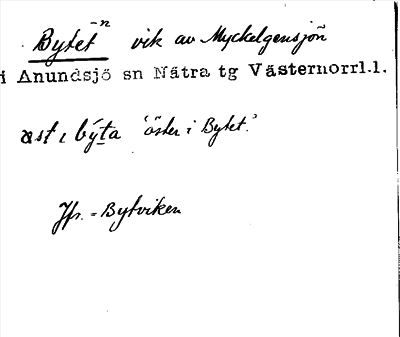 Bytet -n vik av Myckelgensjön
i Anundsjö sn Nätra tg Västernorrl.l.
ást ɩ býta 'öster i Bytet.'
Jfr. = Bytviken